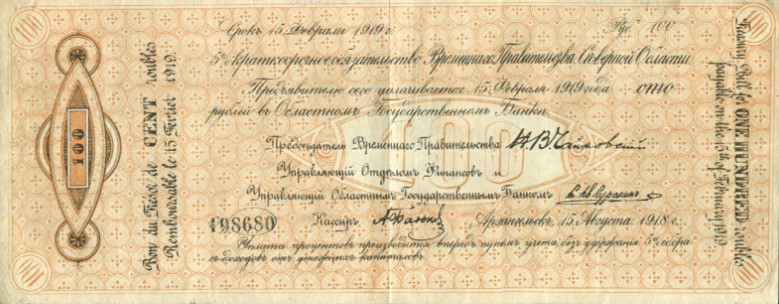 Срокъ 15 Февраля 1919 г.
Руб. 100
5% краткосрочное обязательство Временнаго Правительства Северной Области
Предъявителю сего уплачивается 15 Февраля 1919 года сто
рублей въ Областномъ Государственномъ Банкѣ.
100
Председатель Временнаго Правительства Н.В.Чайковский
Управляющий Отделомъ Финансовъ и
Управляющий Областнымъ Государственнымъ Банкомъ
98680
Кассиръ
Архангельскъ, 15 Августа 1918 г.
Уплата процентовъ производится впередъ путемъ учета, безъ удержания 5% сбора
съ доходовъ отъ денежныхъ капиталовъ.
Bon du Trésor de CENT roubles
Remboursable le 15 Fevrier 1919.
100
Treasury Bill for ONE HUNDRED roubles
payable on the 15th of February 1919.
100
100
100
100